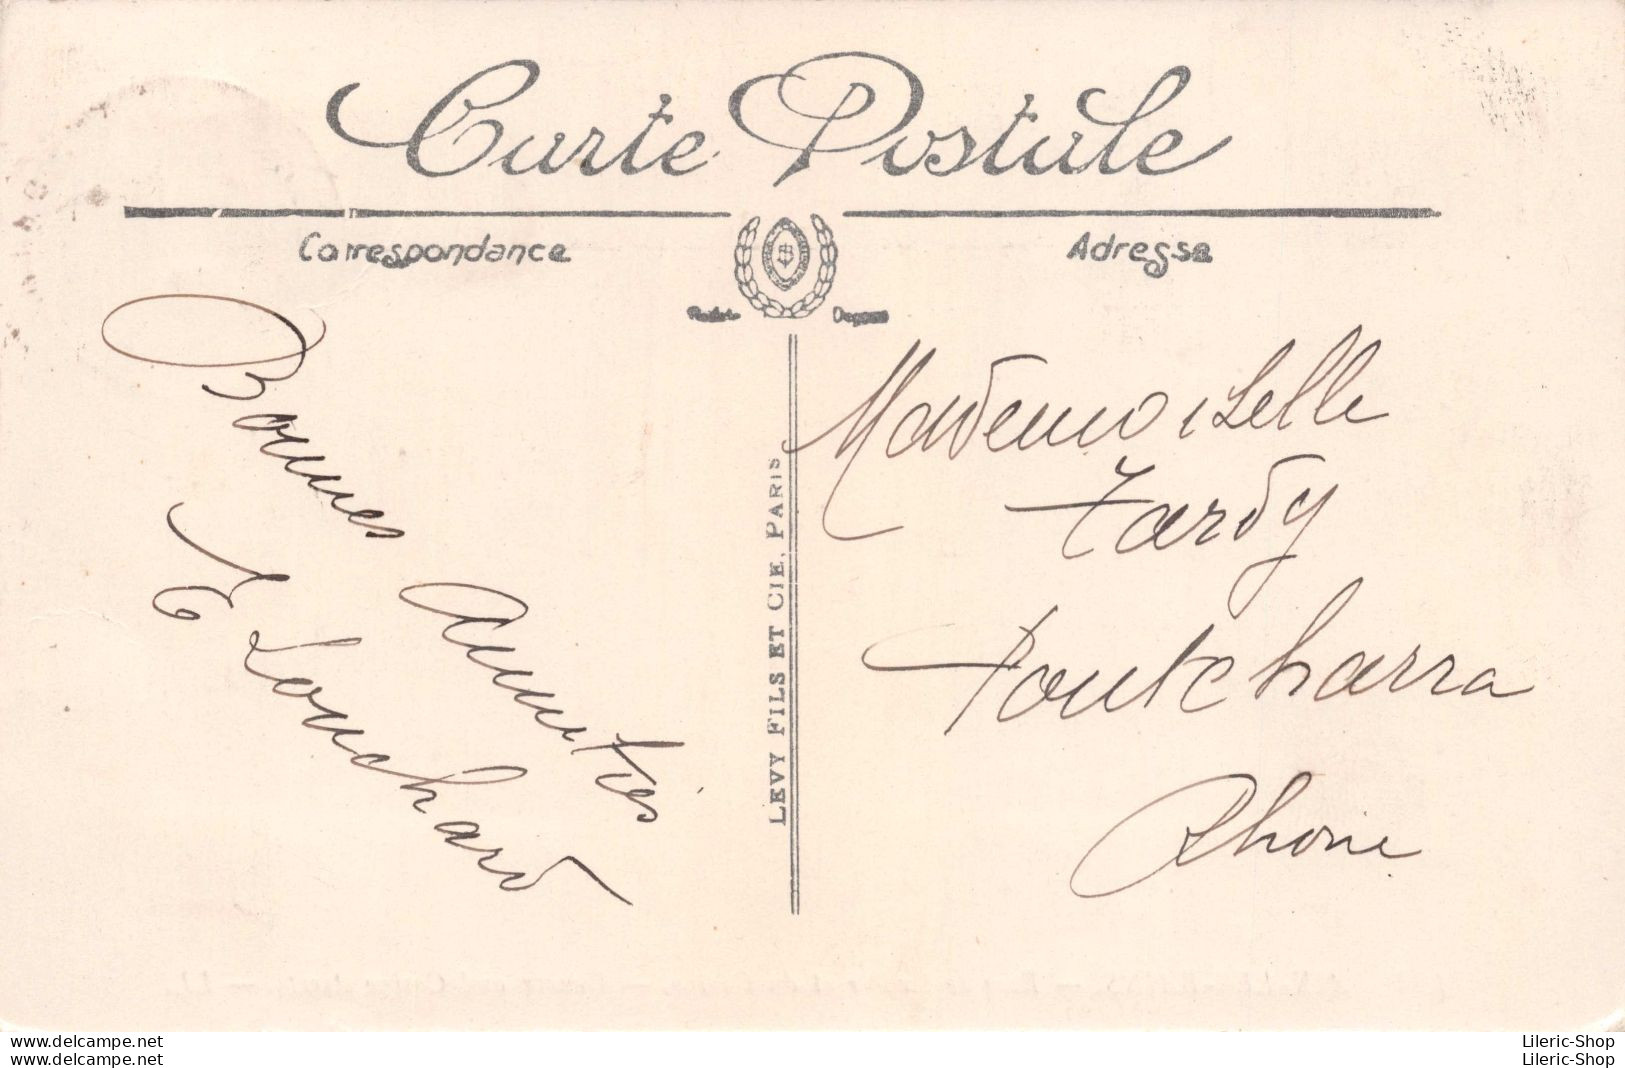 Carte Postale
Correspondance
Adresse
Bonnes
Amitiés
E Louchard
LEVY FILS ET CIE, PARIS
Mademoiselle
Tardy
Pontcharra
Rhône
www.delcampe.net
www.delcampe.net
Lileric-Shop
Lileric-Shop